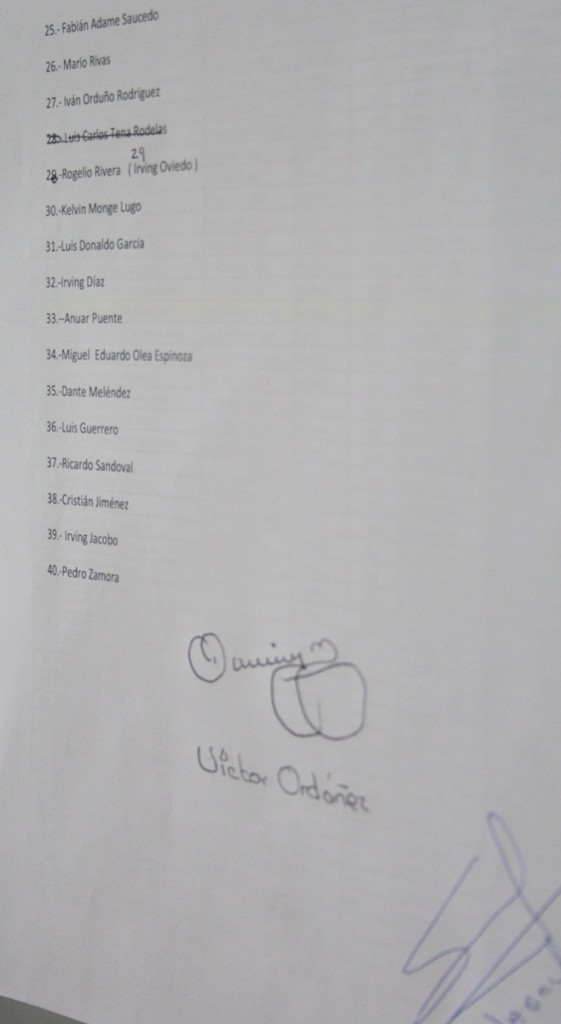 25.- Fabián Adame Saucedo
26.- Mario Rivas
27.- Iván Orduño Rodríguez
28.- Luis Carlos Tena Rodelas
29
28.-Rogelio Rivera (Irving Oviedo)
30.-Kelvin Monge Lugo
31.-Luis Donaldo García
32.-Irving Díaz
33.--Anuar Puente
34.-Miguel Eduardo Olea Espinoza
35.-Dante Meléndez
36.-Luis Guerrero
37.-Ricardo Sandoval
38.-Cristián Jiménez
39.- Irving Jacobo
40.-Pedro Zamora
Víctor Ordóñez